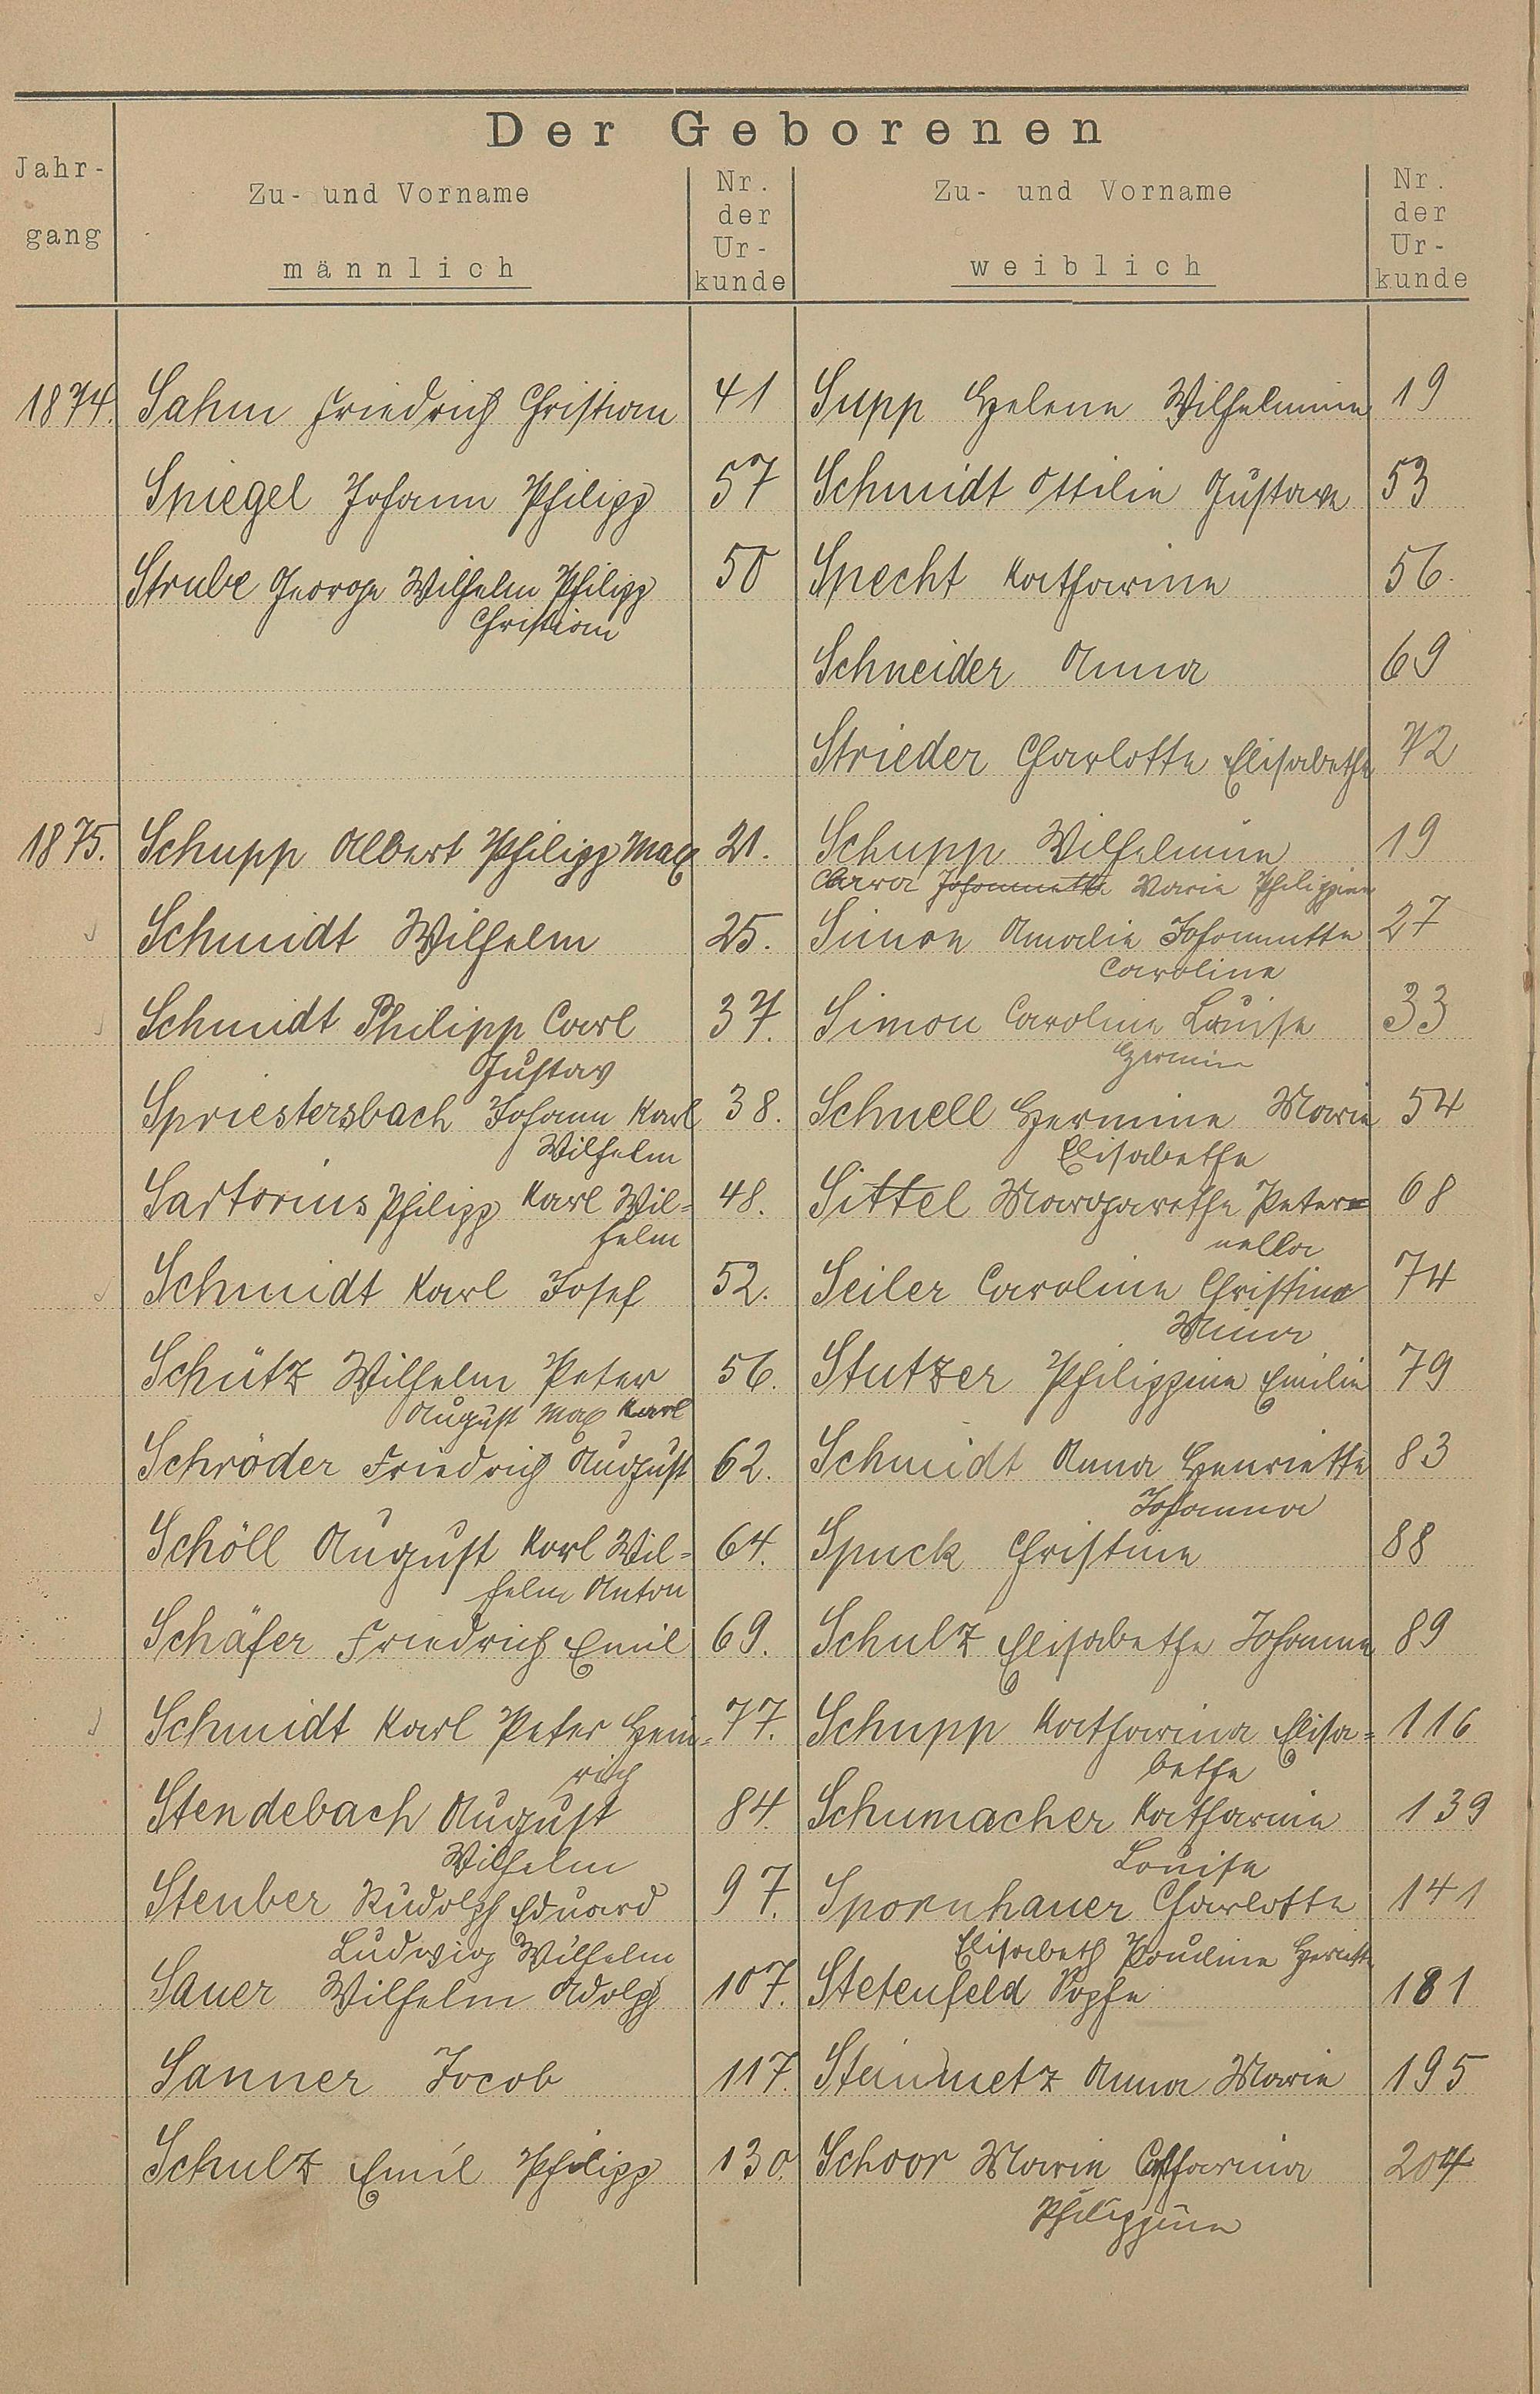 Der Geborenen
Jahr-
gang
Zu- und Vorname
männlich
Nr.
der
Ur-
kunde
Zu- und Vorname
weiblich
Nr.
der
Ur-
kunde
1874. Sahm Friedrich Christian 41 Supp Helene Wilhelmine 19
Spiegel Johann Philipp 57 Schmidt Ottilie Gustave 53
Strube George Wilhelm Philipp 50 Specht Katharine 56.
Christian
Schneider Anna 69
Strieder Charlotte Elisabethe 72
1875. Schupp Albert Philipp Max 21. Schupp Wilhelmine 19
Clara Johannette Marie Philippine
Schmidt Wilhelm 25. Simon Amalie Johannette 27
Caroline
Schmidt Philipp Carl 37. Simon Caroline Louise 33
Gustav Hermine
Spriestersbach Johann Karl 38. Schnell Hermine Marie 54
Wilhelm Elisabethe
Sartorius Philipp Karl Wil= 48. Sittel Margarethe Peter= 68
helm nella
Schmidt Karl Josef 52. Seiler Caroline Christina 74
Mina
Schütz Wilhelm Peter 56. Stutzer Philippine Emilie 79
August Max Karl
Schröder Friedrich August 62. Schmidt Anna Henriette 83
Johanna
Schöll August Karl Wil= 64. Spuck Christine 88
helm Anton
Schäfer Friedrich Emil 69. Schulz Elisabethe Johanna 89
Schmidt Karl Peter Hein= 77. Schupp Katharina Elisa= 116
rich bethe
Stendebach August 84. Schumacher Katharine 139
Wilhelm Louise
Steuber Rudolph Eduard 97. Spornhauer Charlotte 141
Ludwig Wilhelm Elisabeth Pauline
Sauer Wilhelm Adolph 107. Stetenfeld Sophie 181
Sanner Jacob 117. Steinmetz Anna Marie 195
Schulz Emil Philipp 130. Schoor Marie Catharina 204
Philippine